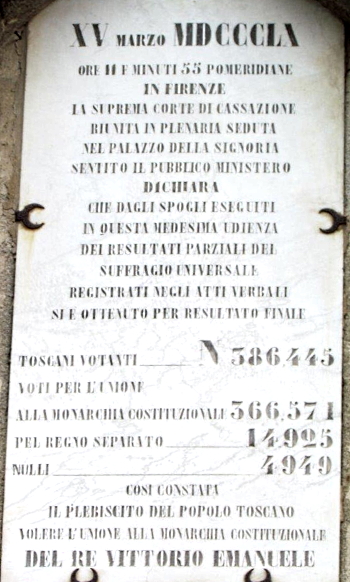 XV MARZO MDCCCLX
ORE 11 E MINUTI 55 POMERIDIANE
IN FIRENZE
LA SUPREMA CORTE DI CASSAZIONE
RIUNITA IN PLENARIA SEDUTA
NEL PALAZZO DELLA SIGNORIA
SENTITO IL PUBBLICO MINISTERO
DICHIARA
CHE DAGLI SPOGLI ESEGUITI
IN QUESTA MEDESIMA UDIENZA
DEI RESULTATI PARZIALI DEL
SUFFRAGIO UNIVERSALE
REGISTRATI NEGLI ATTI VERBALI
SI E OTTENUTO PER RESULTATO FINALE
TOSCANI VOTANTI N 386,445
VOTI PER L'UNIONE
ALLA MONARCHIA COSTITUZIONALE 366,571
PEL REGNO SEPARATO 14,925
NULLI 4949
COSI CONSTATA
IL PLEBISCITO DEL POPOLO TOSCANO
VOLERE L'UNIONE ALLA MONARCHIA COSTITUZIONALE
DEL RE VITTORIO EMANUELE